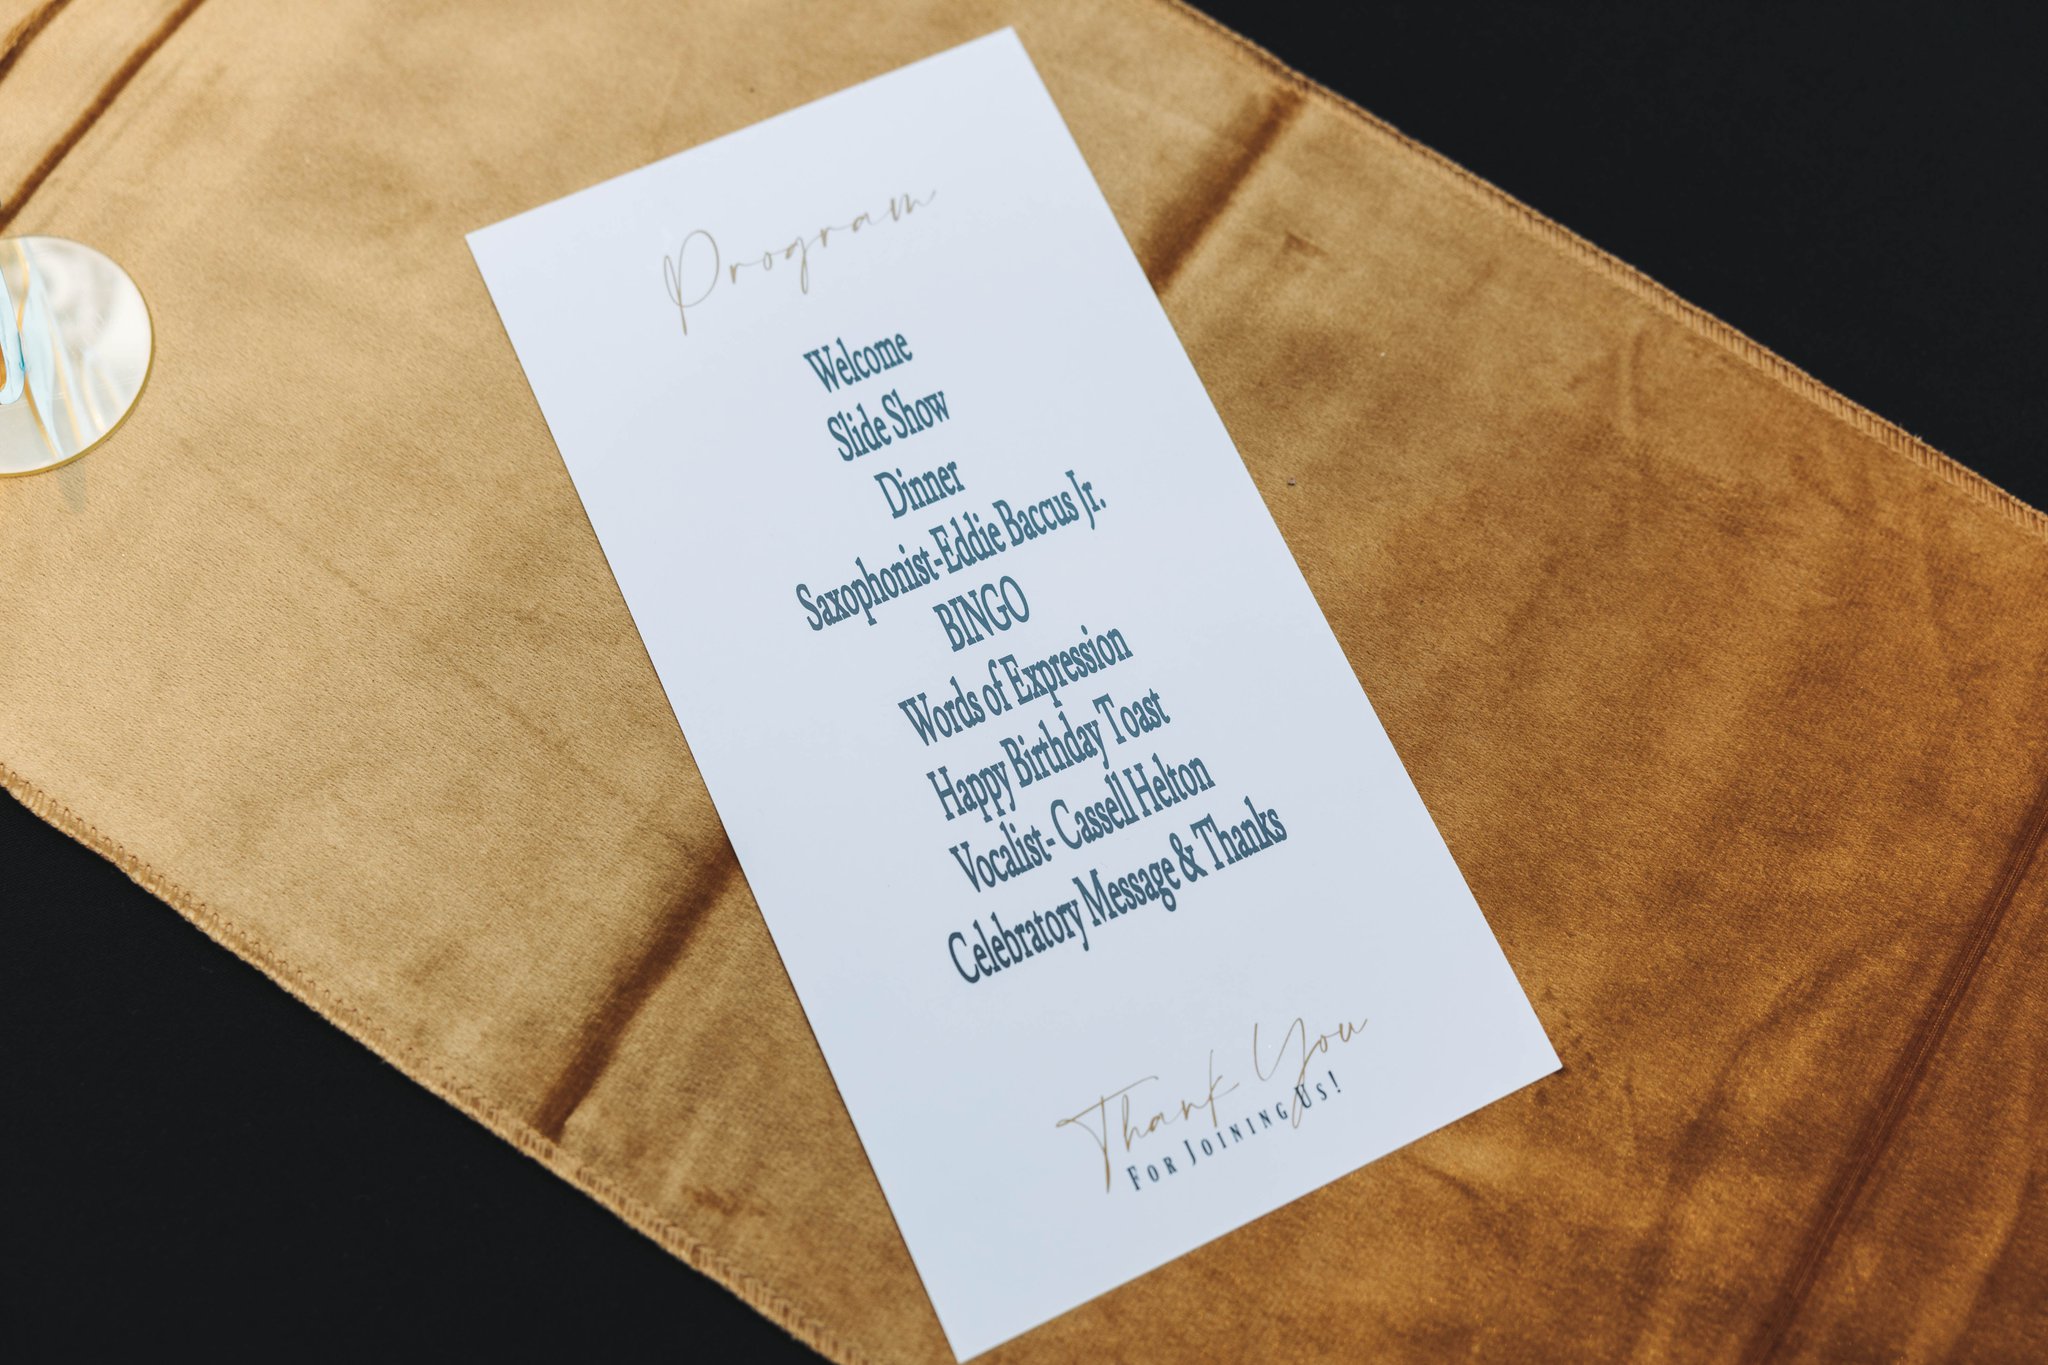 Program
Welcome
Slide Show
Dinner
Saxophonist-Eddie Baccus Jr.
BINGO
Words of Expression
Happy Birthday Toast
Vocalist- Cassell Helton
Celebratory Message & Thanks
Thank You
For Joining Us!